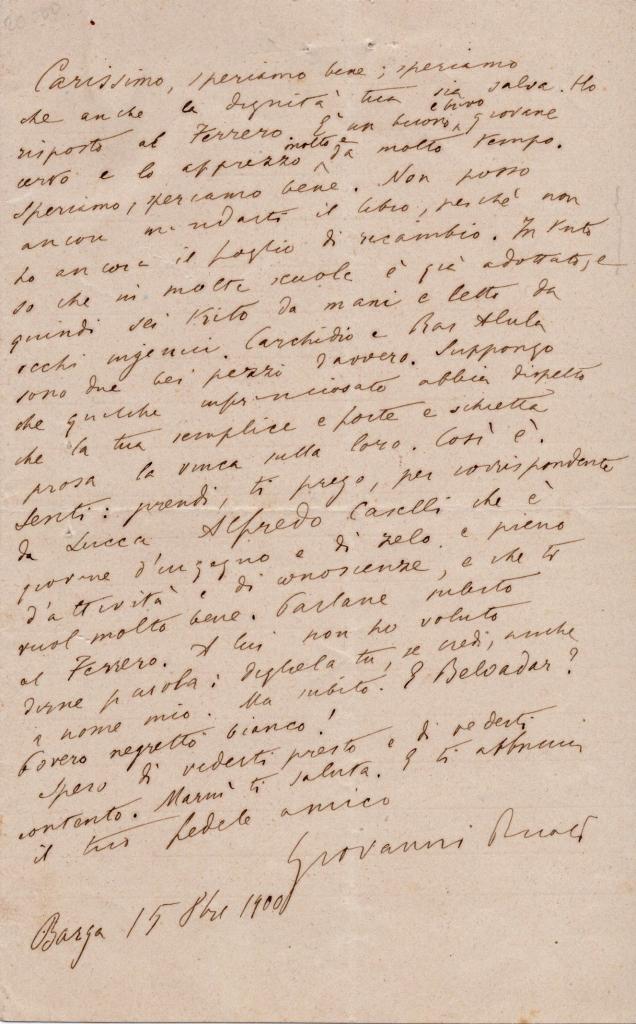 Carissimo, speriamo bene; speriamo
che anche la dignità tua sia salva. Ho
risposto al Ferrero. È un buono e giovane
certo e lo apprezzo molto da molto tempo.
Speriamo, speriamo bene. Non posso
ancora mandarti il libro, perché non
ho ancora il foglio di ricambio. In tanto
so che in molte scuole è già adottato, e
quindi sei trito da mani e letto da
occhi ingenui. Carchidio e Ras Alula
sono due bei pezzi davvero. Suppongo
che qualche infranciosato abbia dispetto
che la tua semplice e forte e schietta
prosa la vinca sulla loro. Così è.
Senti: prendi, ti prego, per corrispondente
da Lucca Alfredo Caselli che è
giovane d'ingegno e di zelo e pieno
d'attività e di conoscenze, e che ti
vuol molto bene. Parlane subito
al Ferrero. A lui non ho voluto
dirne parola: digliela tu, se credi, anche
a nome mio. Ma subito. E Beloadar?
Povero negretto bianco!
Spero di vederti presto e di vederti
contento. Mariù ti saluta. E ti abbracci
il tuo fedele amico
Giovanni
Barga 15 8bre 1900